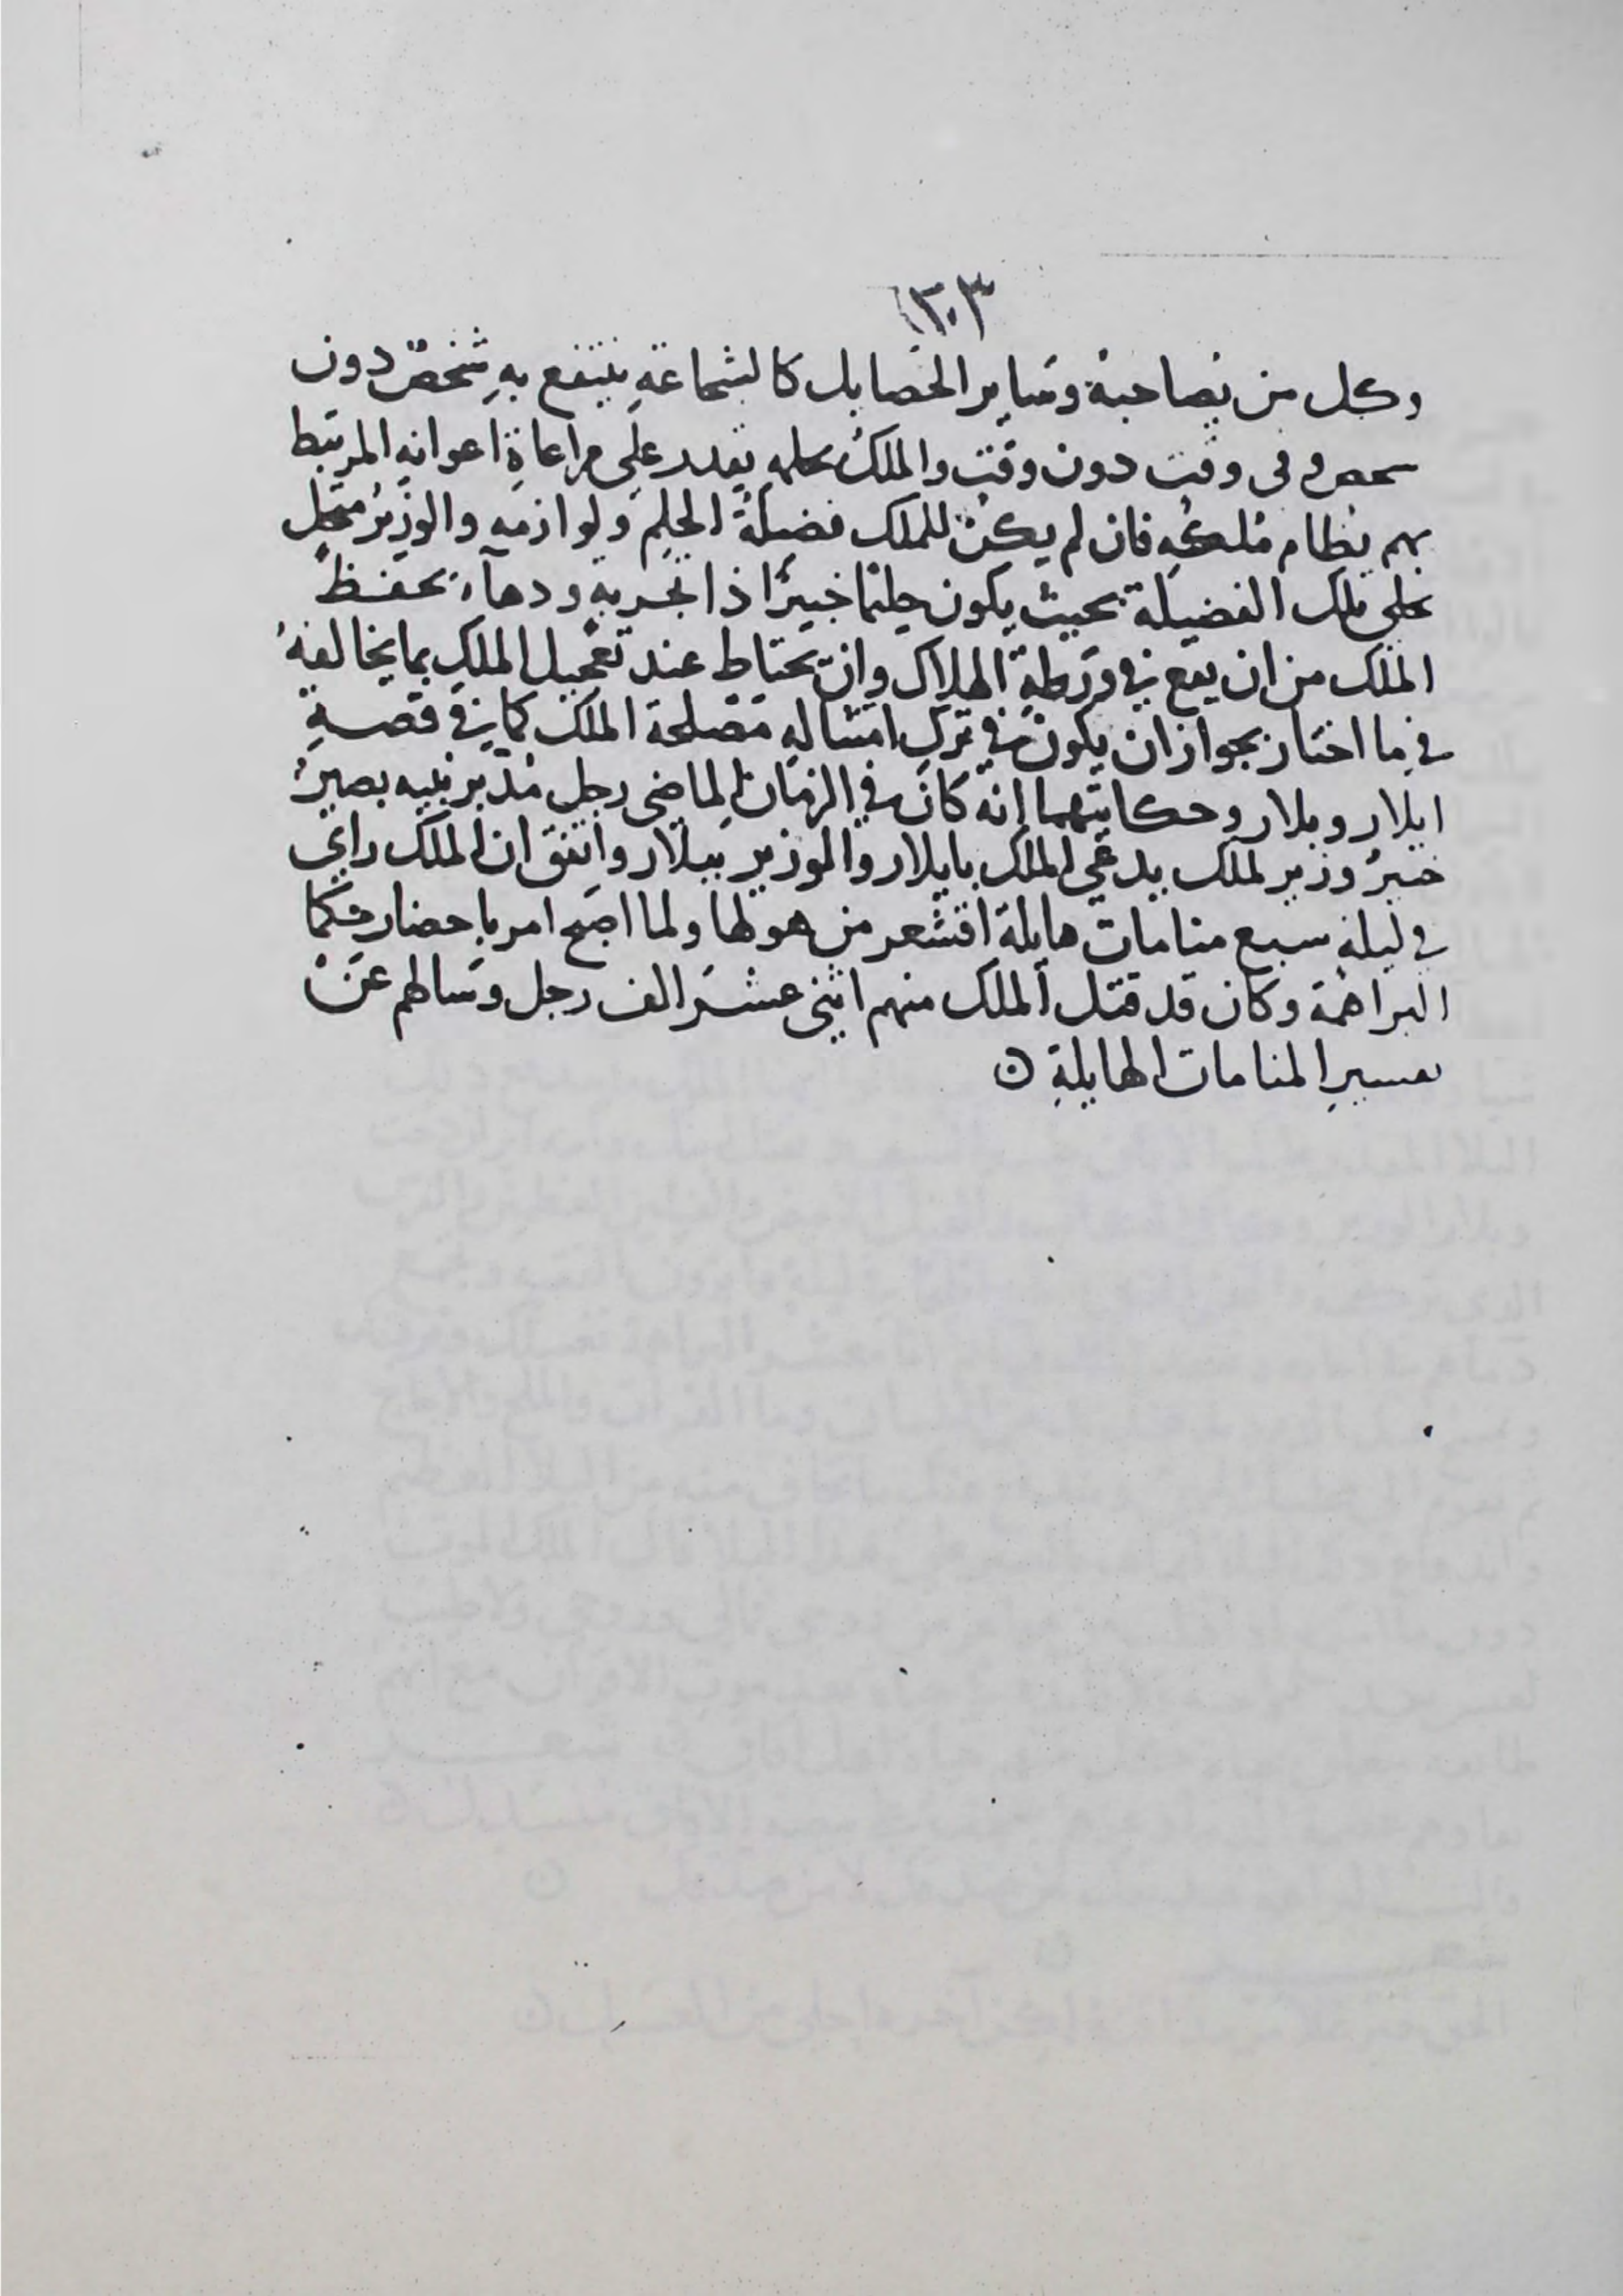 ٣٠٣
وكل من يصاحبهُ وسَاير الخصايل كالشجاعةِ ينتفع بهِ شخصٌ دون
شخص وفى وقت دون وقت والملكُ بحلمهِ يقدر على مراعاةِ اعوانهِ المرتبط
بهم نظام مُلكهِ فان لم يكن للملك فضيلةُ الحلم ولوازمه والوزيرُ متحلٍ
بحلى تلك الفضيلة بحيث يكون حليمًا خبيرًا ذا تجربةٍ ودهآءٍ يحفظ
الملك من ان يقع في ورطةِ الهلاك وان يحتاط عند تعجيل الملكِ بما يخالفهُ
في ما اختار بجواز ان يكون في تركِ امتثالهِ مصلحة الملك كما في قصةِ
ايلار وبلار وحكايتهما انه كان في الزمان الماضى رجل مُدبر نبيه بصيرٌ
خبيرٌ وزير لملك يدعى الملك بايلار والوزير ببلار واتفق ان الملك راى
في ليلةٍ سبع منامات هايلة اقشعر من هولها ولما اصبح امر باحضار حكما
البراهمة وكان قد قتل الملك منهم اثنى عشر الف رجل وسَالهم عَنْ
تفسيرِ المنامات الهايلةِ ن